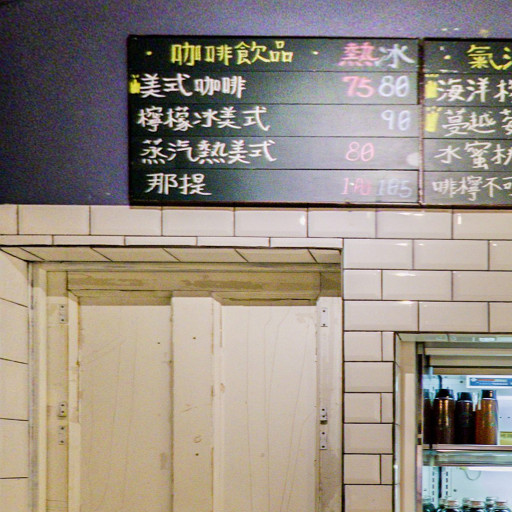 · 咖啡飲品 · 熱 冰
美式咖啡 75 80
檸檬冰美式 90
蒸汽熱美式 80
那提
氣
海洋
蔓越
水蜜
啡檸不可